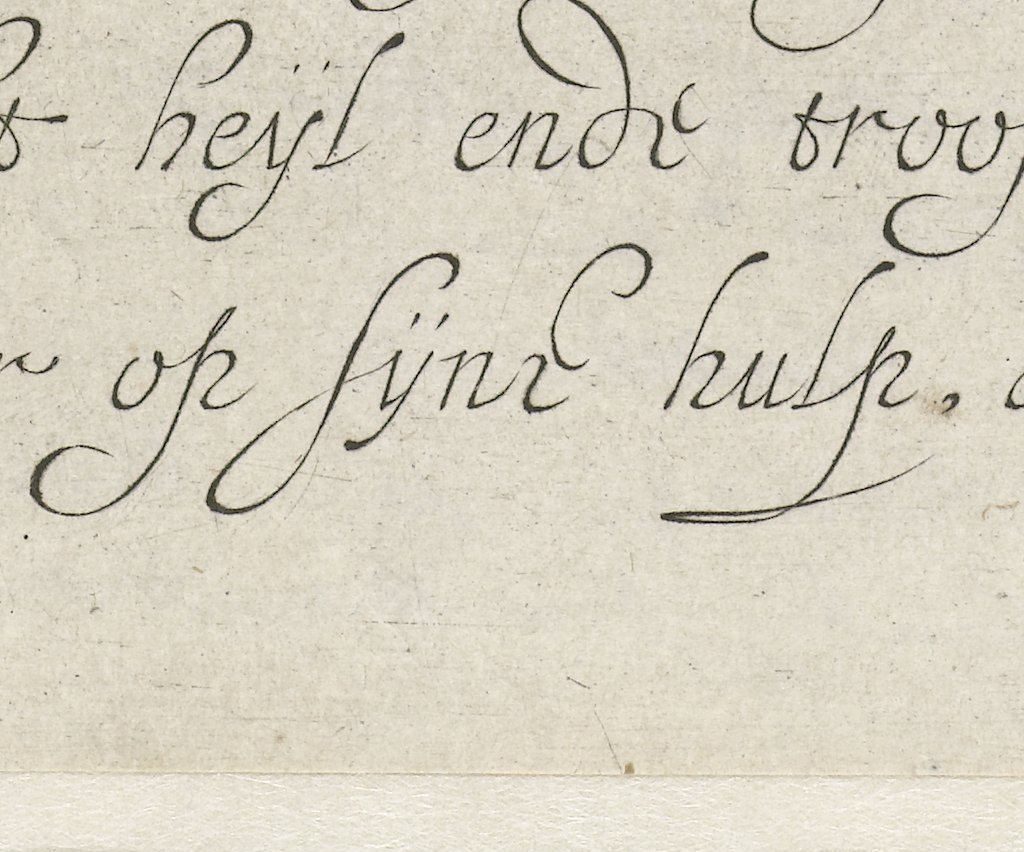 t heÿl ende troos
r op sÿne hulp.